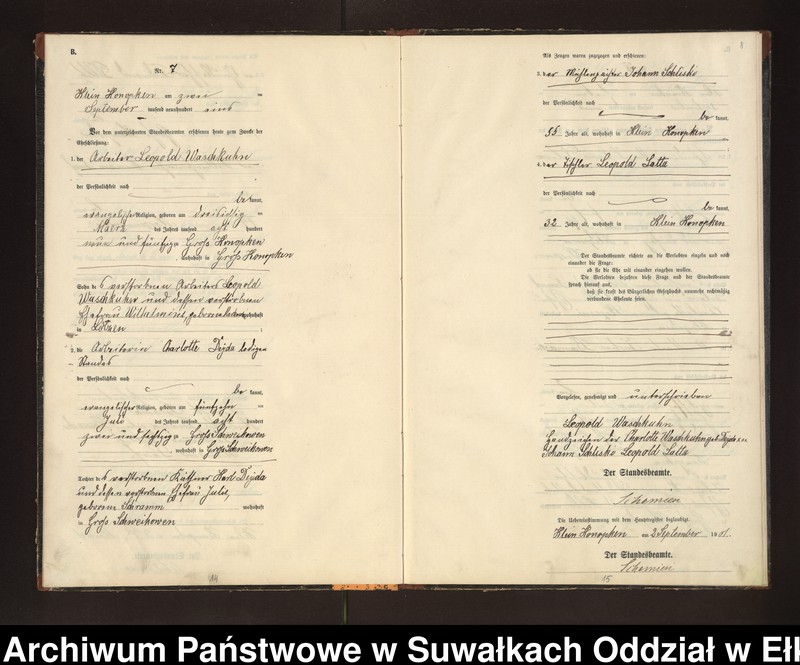 B.
Nr. 7
Klein Konopken am zwei ten
September tausend neunhundert eins
Vor dem unterzeichneten Standesbeamten erschienen heute zum Zwecke der
Eheschließung:
1. der Arbeiter Leopold Waschkuhn
der Persönlichkeit nach
be kannt,
evangelischer Religion, geboren am dreißig ten
März des Jahres tausend acht hundert
neun und fünfzig Groß Konopken
, wohnhaft in Groß Konopken
Sohn des verstorbenen Arbeiters Leopold
Waschkuhn und dessen verstorbenen
Ehefrau Wilhelmine, geborene wohnhaft
in Lötzen
2. die Arbeiterin Charlotte Dzjda ledigen
Standes
der Persönlichkeit nach
be kannt,
evangelischer Religion, geboren am fünfzehn ten
Juli des Jahres tausend acht hundert
zwei und sechszig Groß Schweikowen
, wohnhaft in Groß Schweikowen
Tochter des verstorbenen Käthner Karl Dzjda
und dessen verstorbenen Ehefrau Julie,
geborene Schramm wohnhaft
in Groß Schweikowen
14
8
Als Zeugen waren zugezogen und erschienen:
3. der Mühlenmeister Johann Schliske
der Persönlichkeit nach
be kannt,
55 Jahre alt, wohnhaft in Klein Konopken
4. der Tischler Leopold Latta
der Persönlichkeit nach
be kannt,
32 Jahre alt, wohnhaft in Klein Konopken
Der Standesbeamte richtete an die Verlobten einzeln und nach
einander die Frage:
ob sie die Ehe mit einander eingehen wollen.
Die Verlobten bejahten diese Frage und der Standesbeamte
sprach hierauf aus,
daß sie kraft des Bürgerlichen Gesetzbuchs nunmehr rechtmäßig
verbundene Eheleute seien.
Vorgelesen, genehmigt und unterschrieben
Leopold Waschkuhn
Handzeichen der Charlotte Waschkuhn geb Dzjda
Johann Schliske Leopold Latta
Der Standesbeamte.
Schemien
Die Uebereinstimmung mit dem Hauptregister beglaubigt.
Klein Konopken am 2 September 1901.
Der Standesbeamte.
Schemien
15
Archiwum Państwowe w Suwałkach Oddział w Ełk